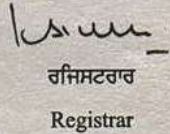 ਰਜਿਸਟਰਾਰ
Registrar